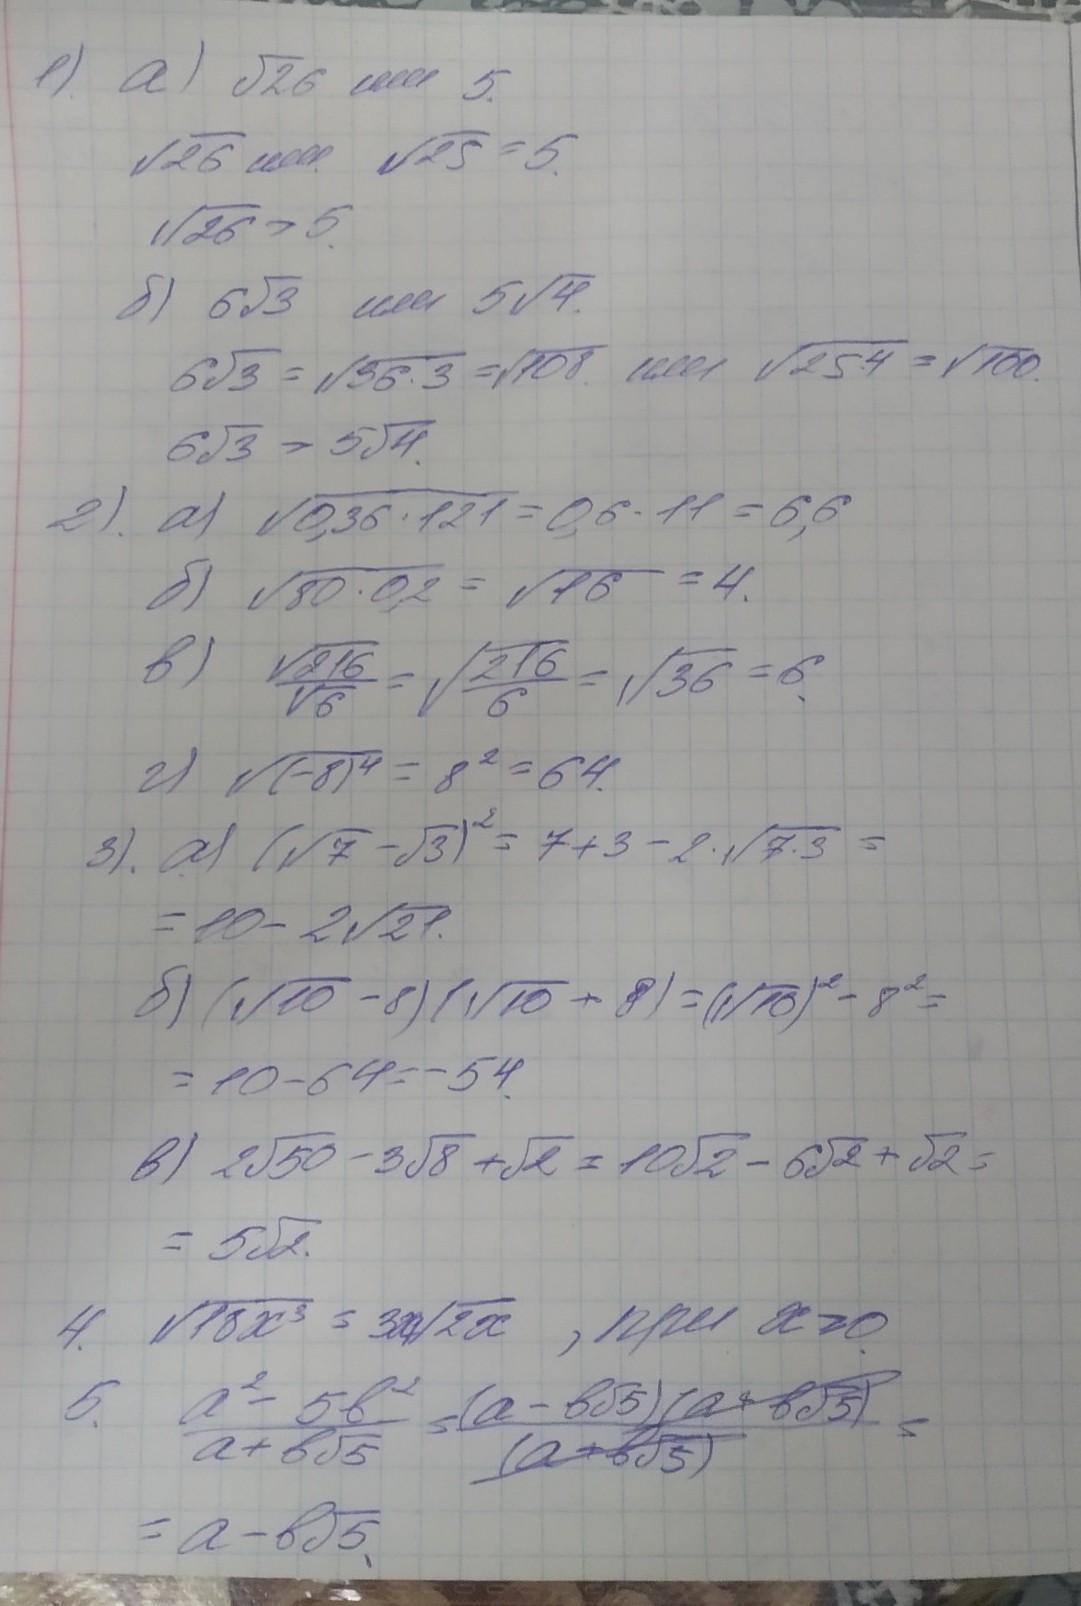 1). а) √26 или 5.
√26 или √25 = 5.
√26 > 5.
б) 6√3 или 5√4.
6√3 = √36·3 = √108. или √25·4 = √100.
6√3 > 5√4.
2). а) √0,36·121 = 0,6·11 = 6,6
б) √80·0,2 = √16 = 4.
в) √216/√6 = √216/6 = √36 = 6.
г) √(-8)⁴ = 8² = 64.
3). а) (√7 - √3)² = 7 + 3 - 2·√7·3 =
= 10 - 2√21.
б) (√10 - 8)(√10 + 8) = (√10)² - 8² =
= 10 - 64 = -54.
в) 2√50 - 3√8 + √2 = 10√2 - 6√2 + √2 =
= 5√2.
4. √18x³ = 3x√2x , при x>0.
5. a² - 5b²/a + b√5 = (a - b√5)(a + b√5)/(a + b√5) =
= a - b√5.